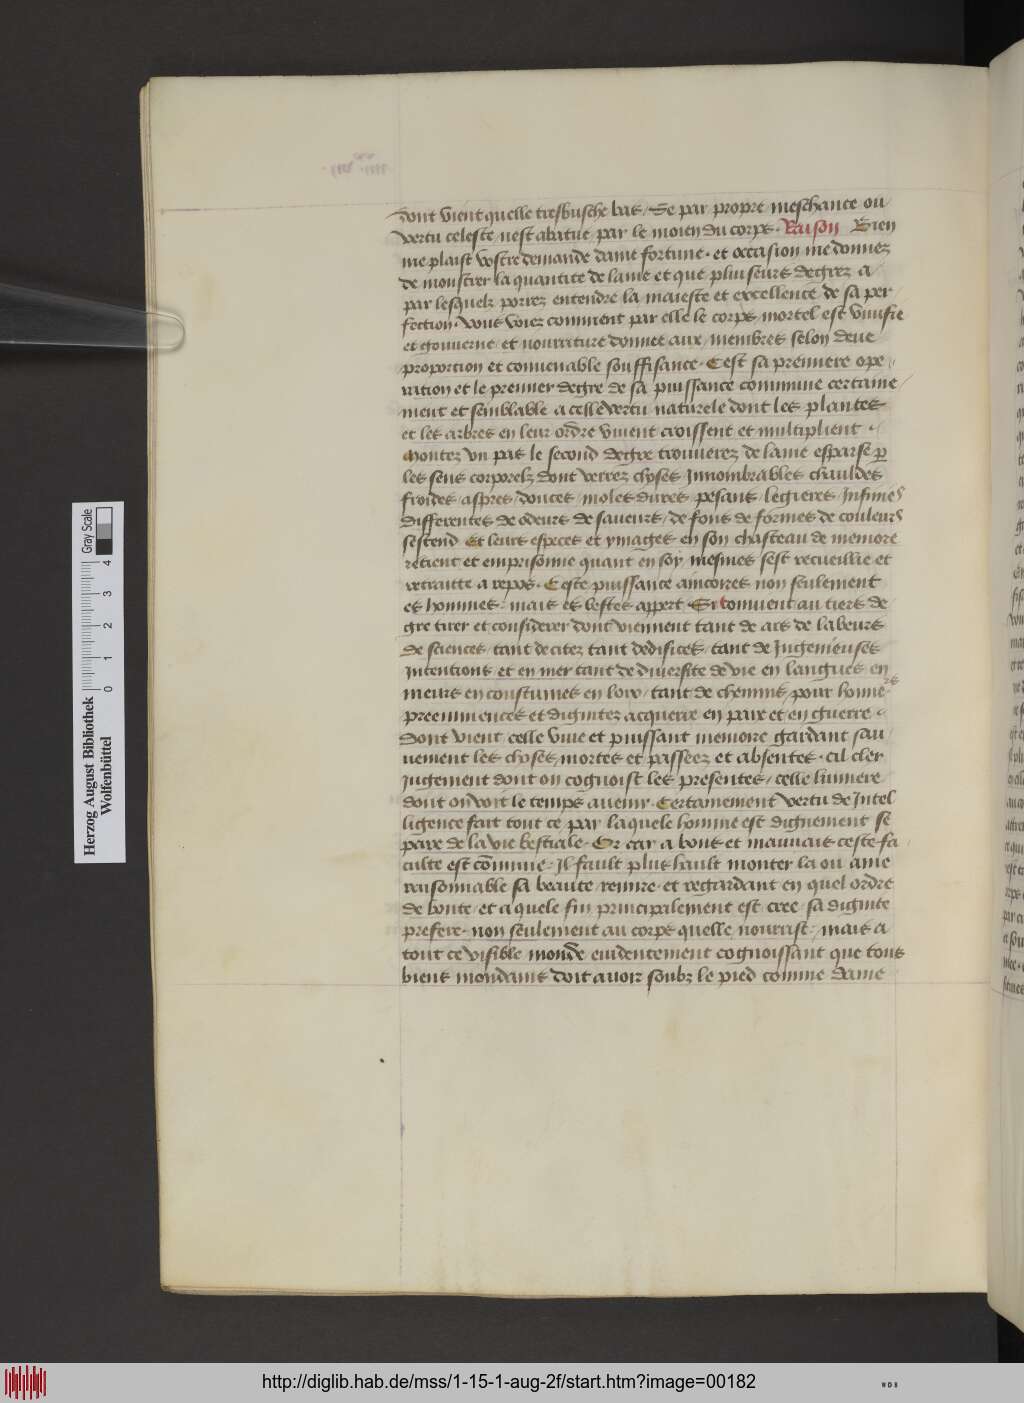 dont vient quelle tresbusche bas / Se par propre meschance ou
vertu celeste nest abatue par le moien du corps · Raison Bien
me plaist vostre demande dame fortune · et occasion me donnez
de monstrer la quantite de lame et que pluiseurs degrez a /
par lesquelz porrez entendre la maieste et excellence de sa per /
fection · Vous voiez comment par elle le corps mortel est vivifie
et gouverne et nourriture donnee aux membres selon deue
proportion et convenable souffisance · Cest sa premiere ope /
ration et le premier degre de sa puissance commune certaine /
ment et semblable a celle vertu naturele dont les plantes
et les arbres en leur ordre vivent croissent et multiplient ·
Montez un pas le second degre trouverez de lame esparse p
les sens corporelz dont verrez choses Innombrables chauldes
froides aspres douces moles dures pesans legieres Infinies
differentes de odeurs de saveurs / de sons de formes de couleurs
sestend Et leurs especes et ymages en son chasteau de memore
retient et emprisonne quant en soy mesmes sest recueillie et
retraitte a repos · Ceste puissance aincores non seulement
es hommes · mais es bestes appert · Et convient au tiers de
gre tirer et considerer dont viennent tant de ars de labeurs
de sciences / tant de citez tant dedifices / tant de Ingenieuses
Intentions et en mer tant de diversite de vie en langues en
meurs en coustumes en loix / tant de chemins pour honneurs
preeminences et dignitez acquerre en paix et en guerre ·
Dont vient celle vive et puissant memoire gardant sau
vement les choses mortes et passeez et absentes · cil cler
Jugement dont on cognoist les presentes / celle lumiere
dont on voit le temps avenir · Certainement vertu de Intel
ligence fait tout ce par laquele homme est dignement se
pare de la vie bestiale · Or car a bons et mauvais ceste fa
culte est commune · Il fault plus hault monter la ou ame
raisonnable sa beaute remire · et regardant en quel ordre
de bonte / et a quele fin principalement est cree sa dignite
prefere · non seulement au corps quelle nourrist · mais a
tout ce visible monde evidentement cognoissant que tous
biens mondains doit avoir soubz le pied comme dame
Herzog August Bibliothek
Wolfenbüttel
0 1 2 3 4
Gray Scale
http://diglib.hab.de/mss/1-15-1-aug-2f/start.htm?image=00182